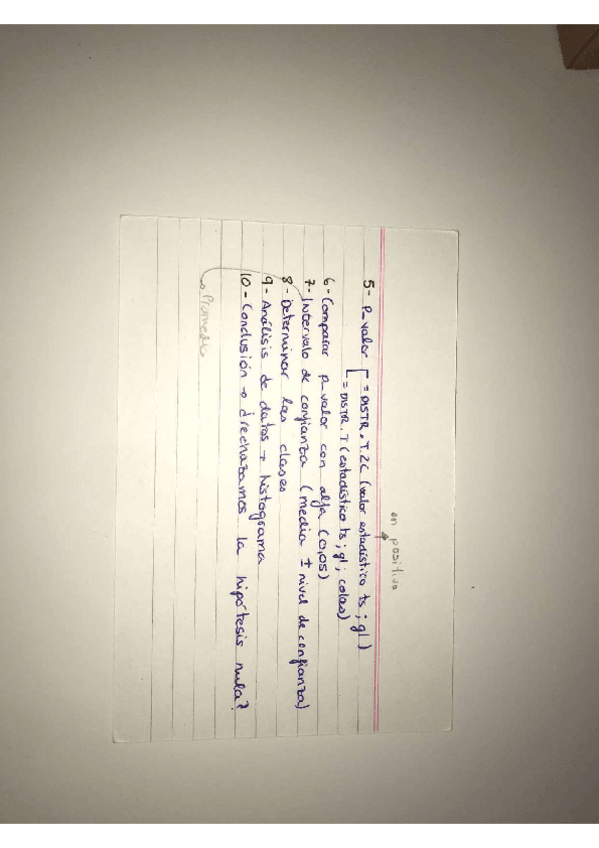 en positivo
5- P-valor [ = DISTR.T.2C (valor estadístico ts ; gl)
= DISTR.T (estadístico ts ; gl ; colas)
6- Comparar p-valor con alfa (0,05)
7- Intervalo de confianza (media ± nivel de confianza)
8- Determinar las clases
9- Análisis de datos → histograma
10- Conclusión → ¿rechazamos la hipótesis nula?
→ Promedio